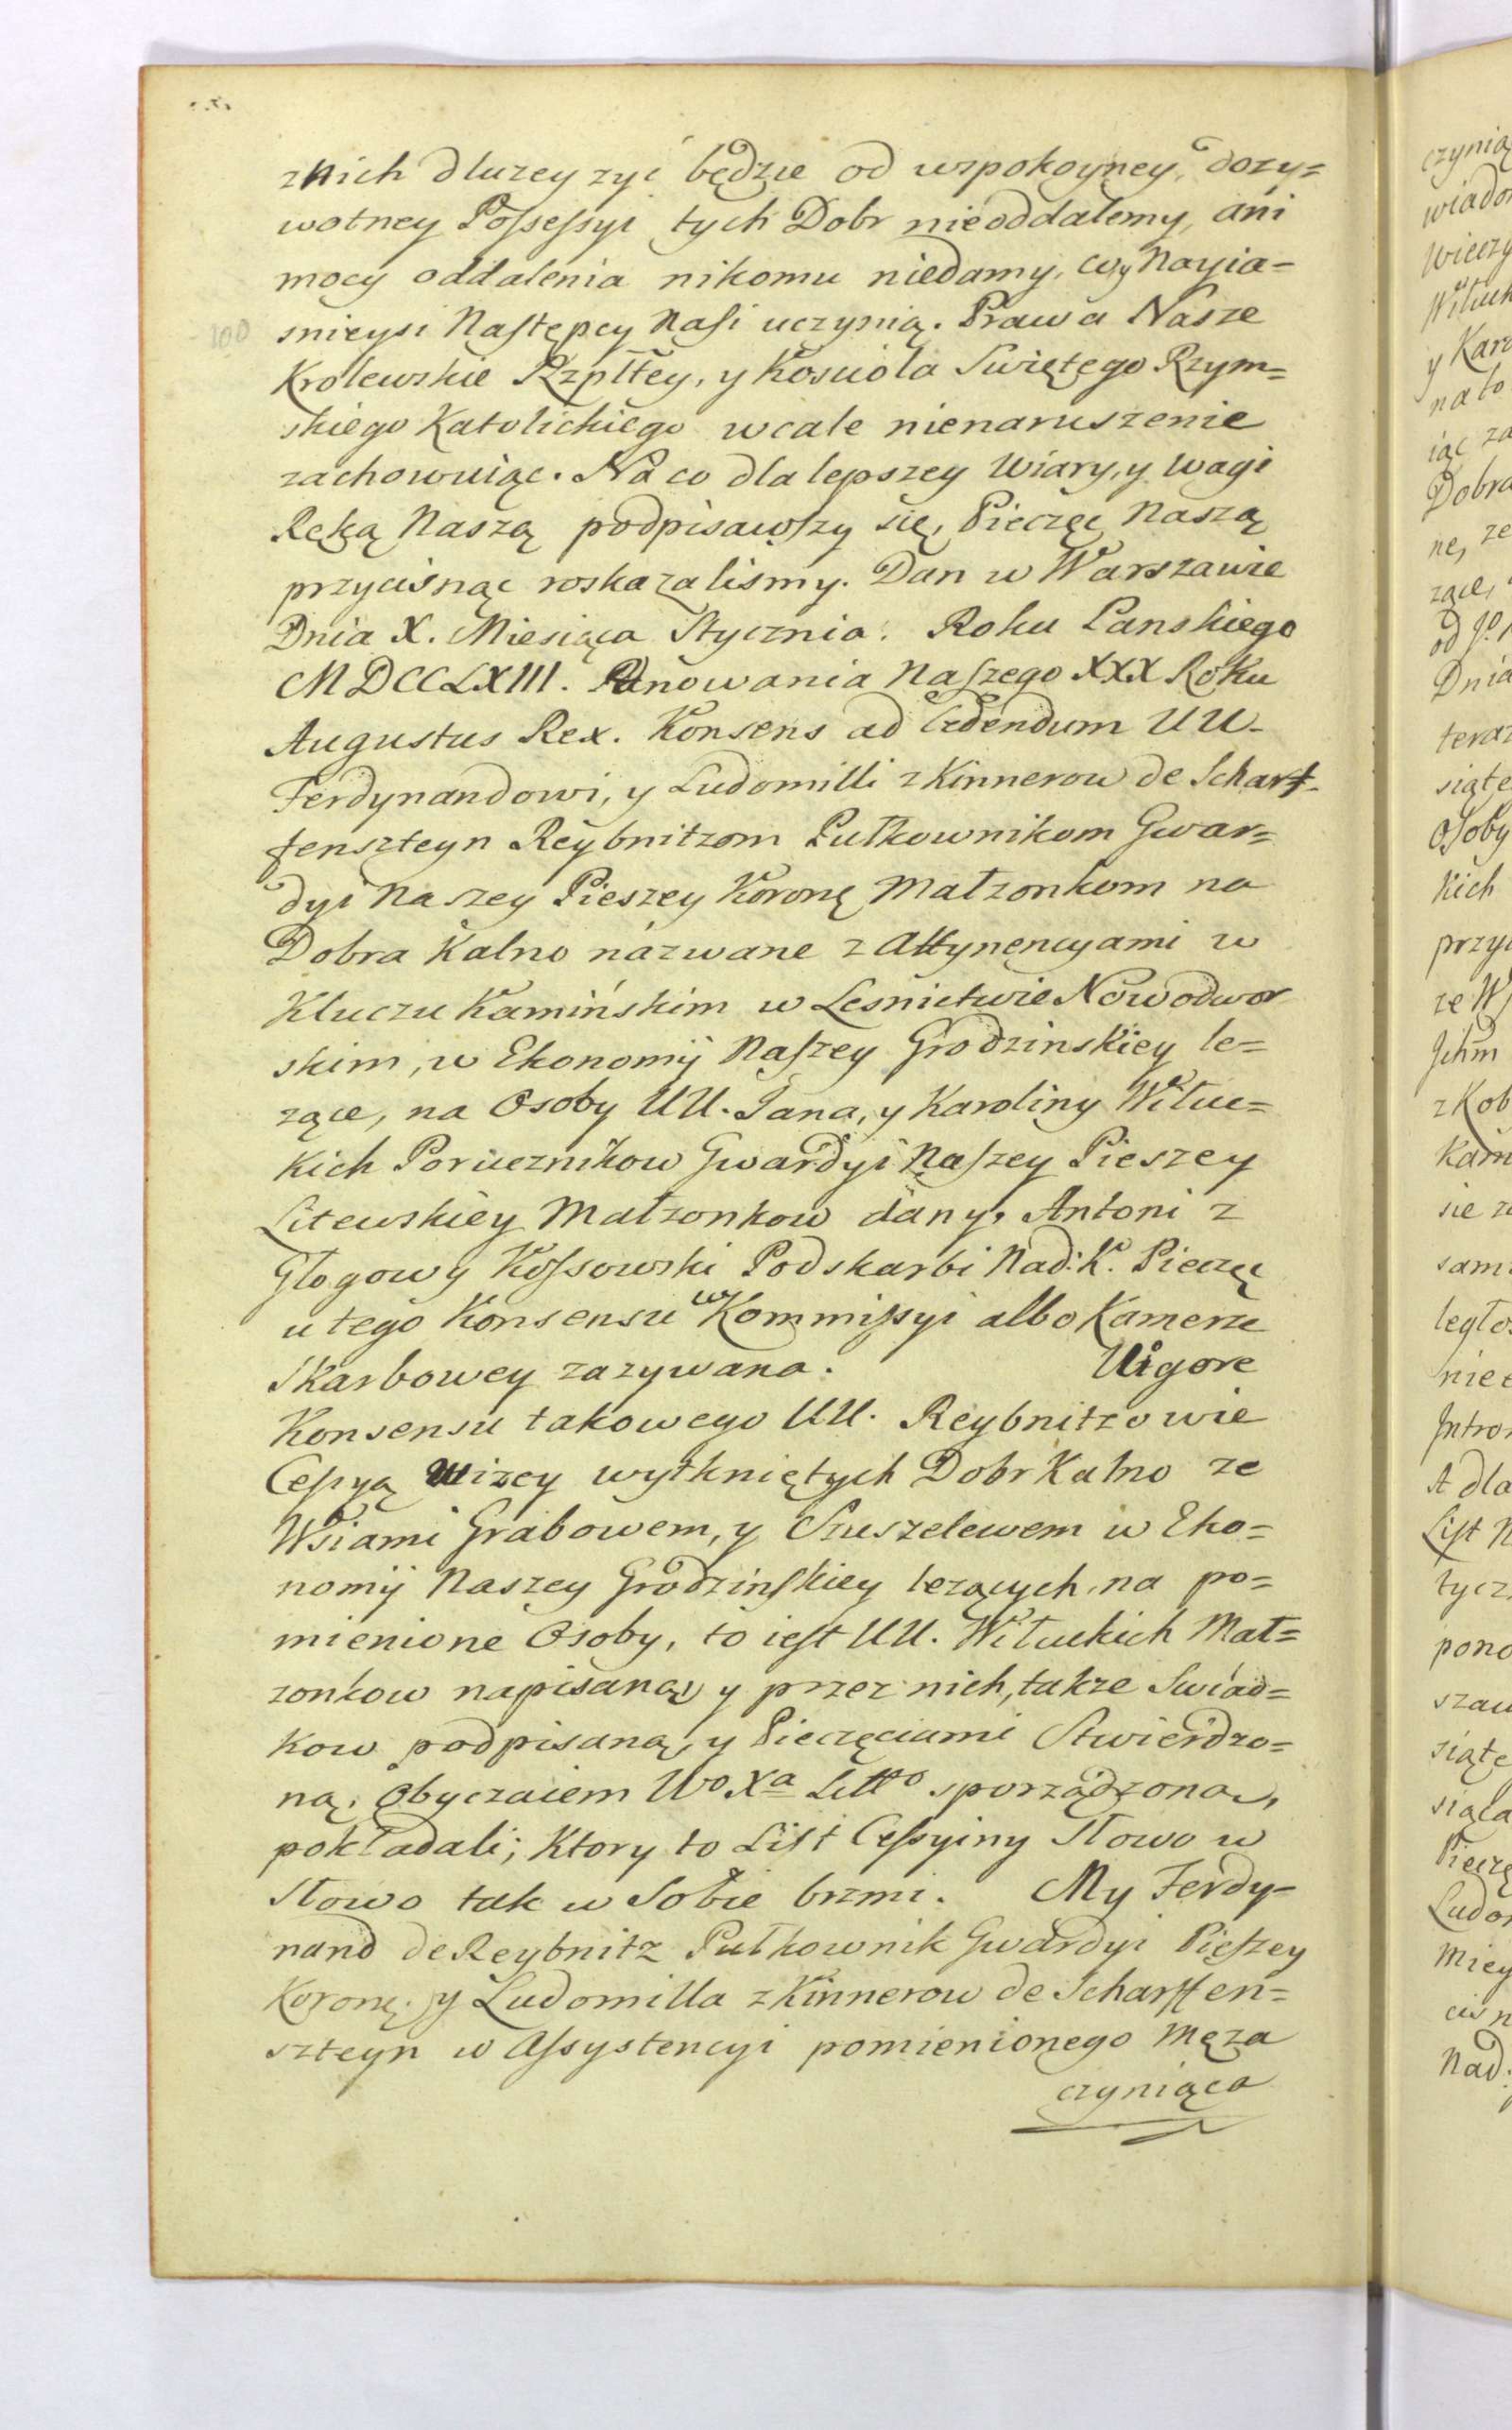 znich dluzey zyć będzie od wspokoyney dozy=
wotney Possessyi tych Dobr nieoddalemy, ani
mocy oddalenia nikomu niedamy, coy Nayia=
snieysi Następcy Nasi uczynią. Prawa Nasze
100
Krolewskie Rzpltey, y Kosciola Swiętego Rzym=
skiego Katolickiego wcale nienaruszenie
zachowuiąc. Na co dla lepszey Wiary, y Wagi
Ręką Naszą podpisawszy się, Pieczęc Naszą
przycisnąc roskazalismy. Dan w Warszawie
Dnia X. Miesiąca Stycznia. Roku Panskiego
MDCCLXIII. Panowania Naszego XXX Roku
Augustus Rex. Konsens ad Cedendum UU.
Ferdynandowi, y Ludomilli z Kinnerow de Scharf-
fenszteyn Reybnitzom Pułkownikom Gwar=
dyi Naszey Pieszey Koronę Małzonkom na
Dobra Kalno názwane z Attynencyami w
Kluczu Kamińskim w Lesnictwie Nowodwor
skim, w Ekonomij Naszey Grodzinskiey le=
zące, na Osoby UU. Jana, y Karoliny Wituc=
kich Porucznikow Gwardyi Naszey Pieszey
Litewskiey Małzonkow dany, Antoni z
Głogowy Kossowski Podskarbi Nad: K. Pieczęc
u tego Konsensu w Kommissyi albo Kamerze
Skarbowey zazywana. Uigore
Konsensu takowego UU. Reybnitzowie
Cessyą wizey wytkniętych Dobr Kalno ze
Wsiami Grabowem, y Suszelewem w Eko=
nomij Naszey Grodzinskiey lezących, na po=
mienione Osoby, to iest UU. Wituckich Mał=
zonkow napisaną, y przez nich, takze Swiad=
kow podpisaną, y Pieczęciami Stwierdzo=
ną, Obyczaiem Wo Xa Litto sporządzoną,
pokładali; Ktory to List Cessyiny Słowo w
Słowo tak w Sobie brzmi. My Ferdy=
nand de Reybnitz Pułkownik Gwardyi Pieszey
Koronę. y Ludomilla z Kinnerow de Scharffen=
szteyn w Assystencyi pomienionego Męza
czyniąca